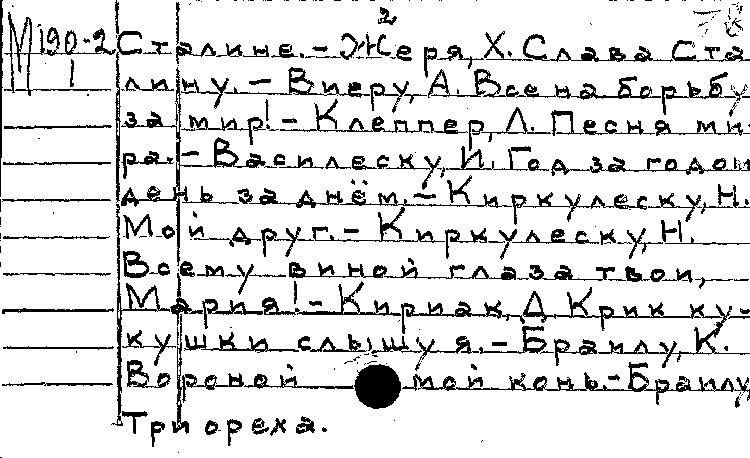 2
М190-2 Сталине.- Жеря, Х. Слава Ста
1 лину. - Виеру, А. Все на борьбу
за мир! - Клеппер, Л. Песня ми-
ра. - Василеску, И. Год за годом
день за днём. - Киркулеску, Н.
Мой друг. - Киркулеску, Н.
Всему виной глаза твои,
Мария! - Кириак, Д. Крик ку-
кушки слышу я. - Браилу, К.
Вороной мой конь. - Браилу,
Три ореха.